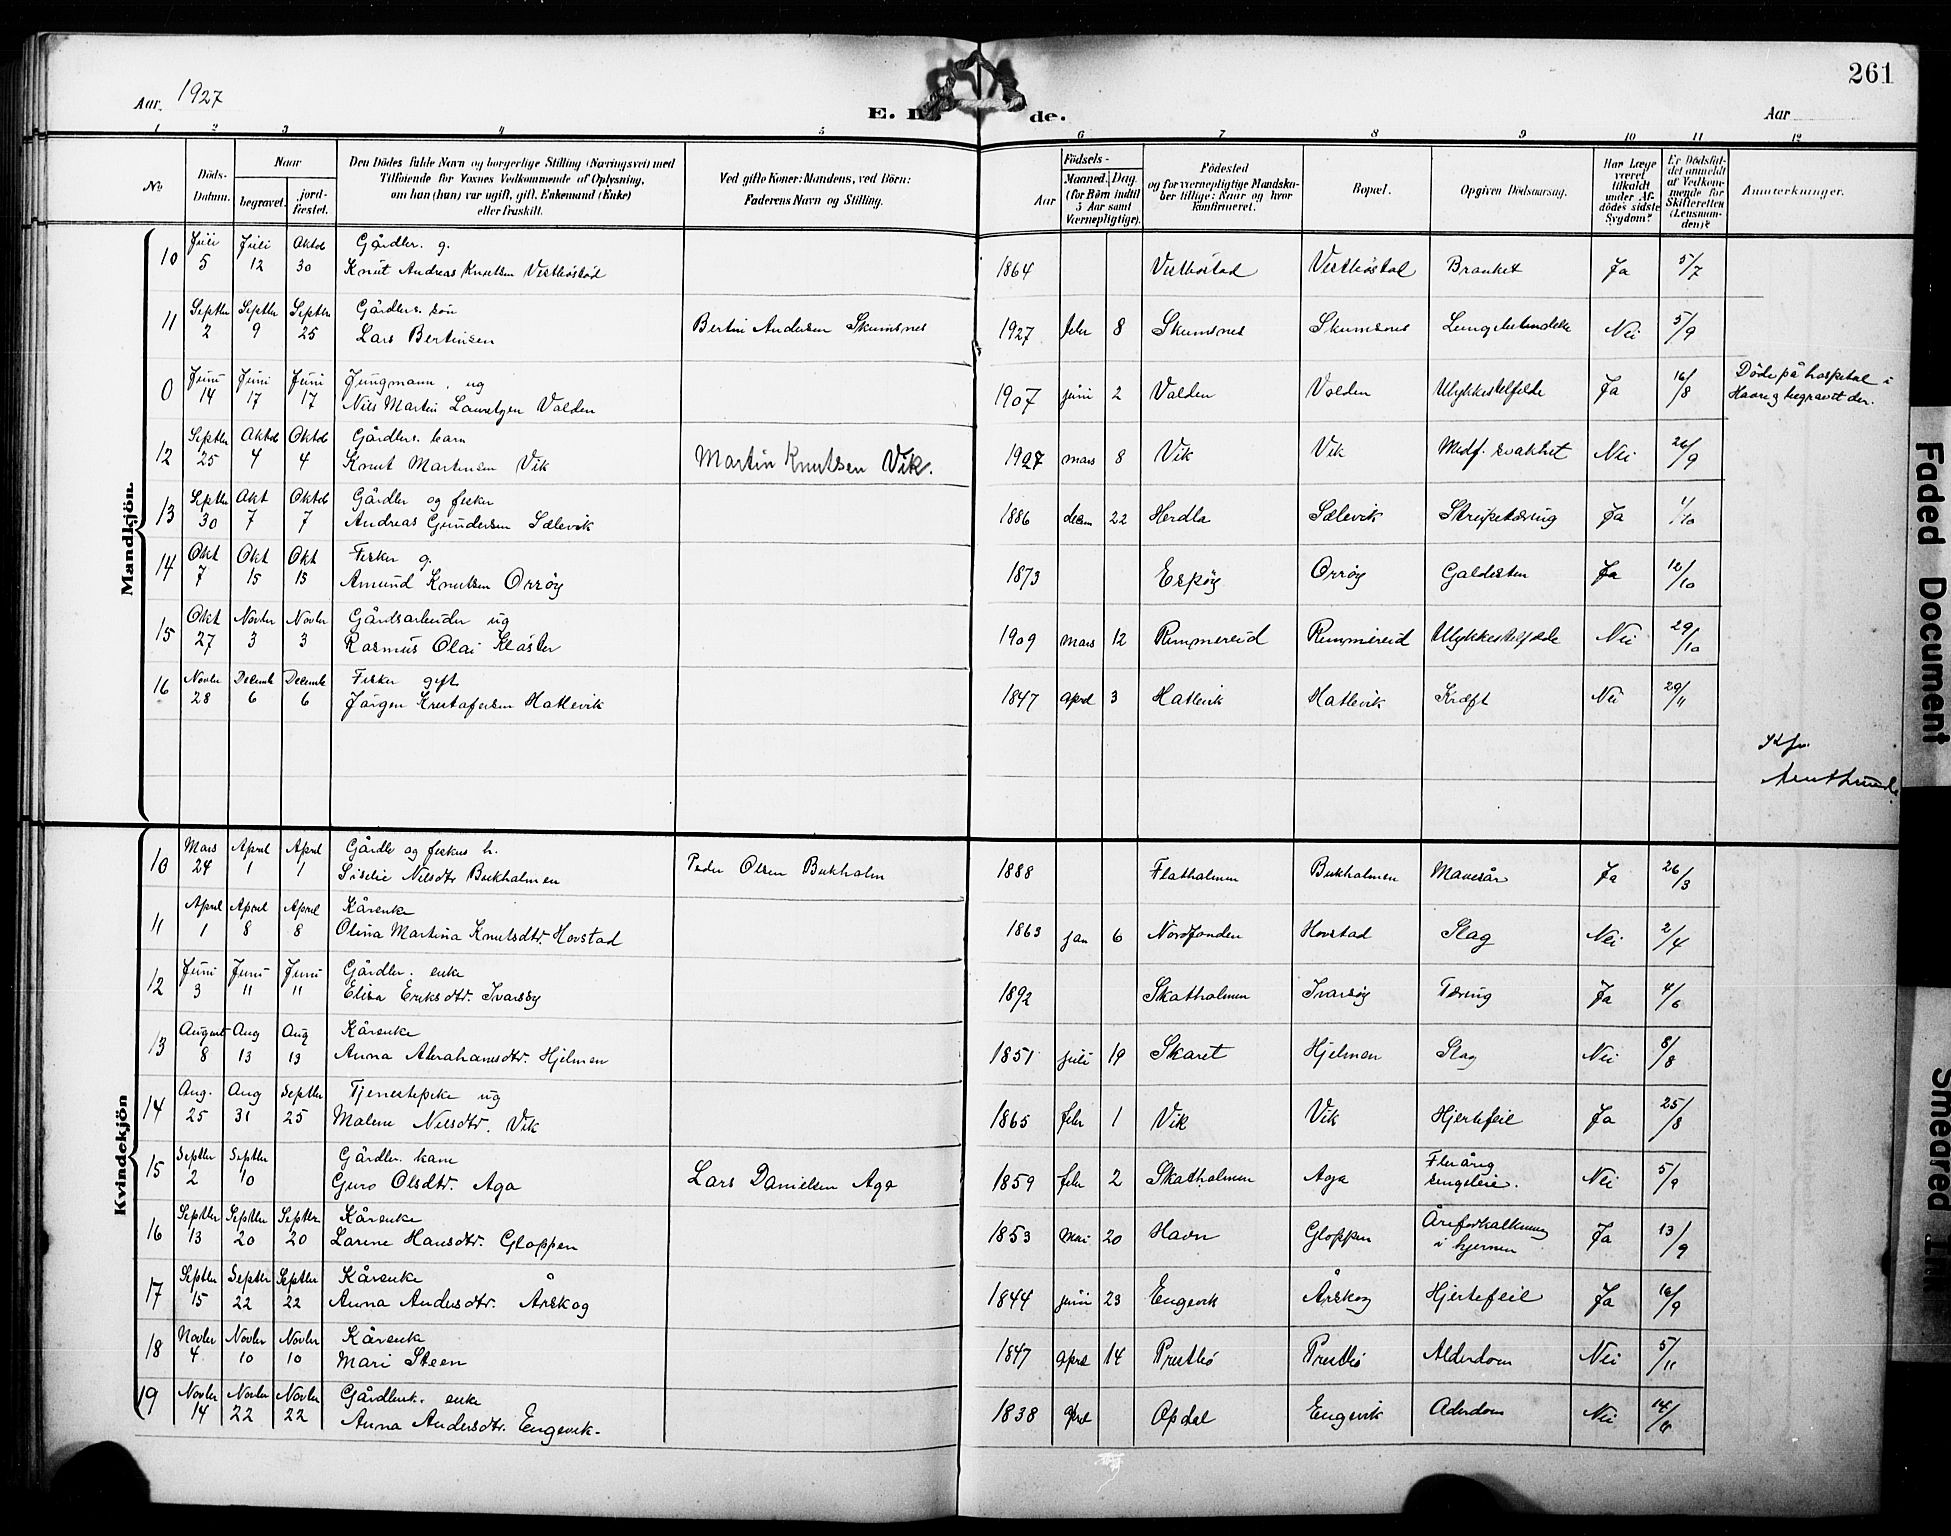 261
Aar. 1927
E. D de.
Aar
1 2 3 4 5 6 7 8 9 10 11 12
No
Döds-Datum.
Naar
begravet.
jord-fæstet.
Den Dödes fulde Navn og borgerlige Stilling (Næringsvei) med
Tilföiende for Voxnes Vedkommende af Oplysning,
om han (hun) var ugift, gift, Enkemand (Enke)
eller fraskilt.
Ved gifte Koner: Mandens, ved Börn:
Faderens Navn og Stilling.
Födsels-
Aar
Maaned. Dag
(for Börn indtil
5 Aar samt
Værnepligtige).
Födested
og for værnepligtige Mandska-
ber tillige: Naar og hvor
konfirmeret.
Bopæl.
Opgiven Dödsaarsag.
Har Læge
været
tilkaldt
under Af-
dödes sidste
Sygdom?
Er Dödsfal-
det anmeldt
af Vedkom-
mende for
Skifteretten
(Lensman-
den)?
Anmærkninger.
Mandkjön.
10 Juli 5 Juli 12 Oktob 30 Gårdbr. g.
Knut Andreas Knutsen Vestböstad 1864 Vestbostad Vestböstad Brauket Ja 5/7
11 Septbr 2 Septbr 9 Septbr 25 Gårdbrs. sön
Lars Bertinsen Bertin Andersen Skumsnes 1927 febr 8 Skumsnes Skumsnes Lungebetendelse Nei 5/9
0 Juni 14 Juni 17 Juni 17 Jungmann. ug
Nils Martin Lauritzen Valden 1907 juni 2 Valden Valden Ulykkestilfelde Ja 16/8 Döde på hospital i
Havre og begravet der.
12 Septbr 25 Oktob 4 Oktob 4 Gårdbrs. barn
Knut Martinsen Vik Martin Knutsen Vik. 1927 mars 8 Vik Vik Medf. svakhet Nei 26/9
13 Septbr 30 Okt 7 Oktob 7 Gårdbr og fisker
Andreas Gundersen Sælevik 1886 decm 22 Herdla Sælevik Strupetæring Ja 1/10
14 Okt 7 Okt 15 Okt 15 Fisker g.
Amund Knutsen Orröy 1873 Espöy Orröy Galdesten Ja 12/10
15 Okt 27 Novbr 3 Novbr 3 Gårdsarbeider ug
Rasmus Olai Klöster 1909 mars 12 Rimmereid Rimmereid Ulykkestilfelde Nei 29/10
16 Novbr 28 Decemb 6 Decemb 6 Fisker gift
Jörgen Kristofersen Hatlevik 1847 april 3 Hatlevik Hatlevik Kræft Nei 29/11
Kvindekjön
10 Mars 24 April 1 April 1 Gårdbr og fiskers h.
Siselie Nilsdtr Bukholmen Peder Olsen Bukholm 1888 Flatholmen Bukholmen Mavesår Ja 26/3
11 April 1 April 8 April 8 Kårenke
Olina Martina Knutsdtr. Hovstad 1863 jan 6 Nordfonden Hovstad Slag Nei 2/4
12 Juni 3 Juni 11 Juni 11 Gårdbr. enke
Elisa Eriksdtr. Ivarsöy 1892 Skatholmen Ivarsöy Tæring Ja 4/6
13 August 8 Aug 13 Aug 13 Kårenke
Anna Abrahamsdtr. Hjelmen 1851 juli 19 Skaret Hjelmen Slag Nei 8/8
14 Aug. 25 Aug 31 Septbr 25 Tjenestepike ug
Malene Nilsdtr. Vik 1865 febr 1 Vik Vik Hjertefeil Ja 25/8
15 Septbr 2 Septbr 10 Gårdbr. kone
Guro Olsdtr. Aga Lars Danielsen Aga 1859 febr 2 Skatholmen Aga Flerårig
sengeleie. Nei 5/9
16 Septbr 13 Septbr 20 Septbr 20 Kårenke
Larine Hansdtr. Gloppen 1853 Mai 20 Havn Gloppen Åreforkalkning
i hjernen Ja 13/9
17 Septbr 15 Septbr 22 Septbr 22 Kårenke
Anna Andersdtr. Årskog 1844 juni 23 Engevik Årskog Hjertefeil Ja 16/9
18 Novbr 4 Novbr 10 Novbr 10 Kårenke
Mari Steen 1847 april 14 Prestbö Prestbö Alderdom Nei 5/11
19 Novbr 14 Novbr 22 Novbr 22 Gårdbrk. enke
Anna Andersdtr. Engevik. 1838 april Opdal Engevik Alderdom Nei 14/11
Faded Document
Smeared Ink